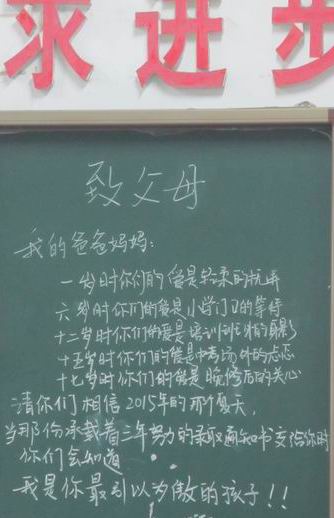 求进步
致父母
我的爸爸妈妈：
一岁时你们的爱是轻柔的抚弄
六岁时你们的爱是小学门口的等待
十二岁时你们的爱是培训班外的身影
十五岁时你们的爱是中考场外的忐忑
十七岁时你们的爱是晚修后的关心
请你们相信2015年的那个夏天，
当那份承载着三年努力的录取通知书交给你时
你们会知道
我是你最引以为傲的孩子！！